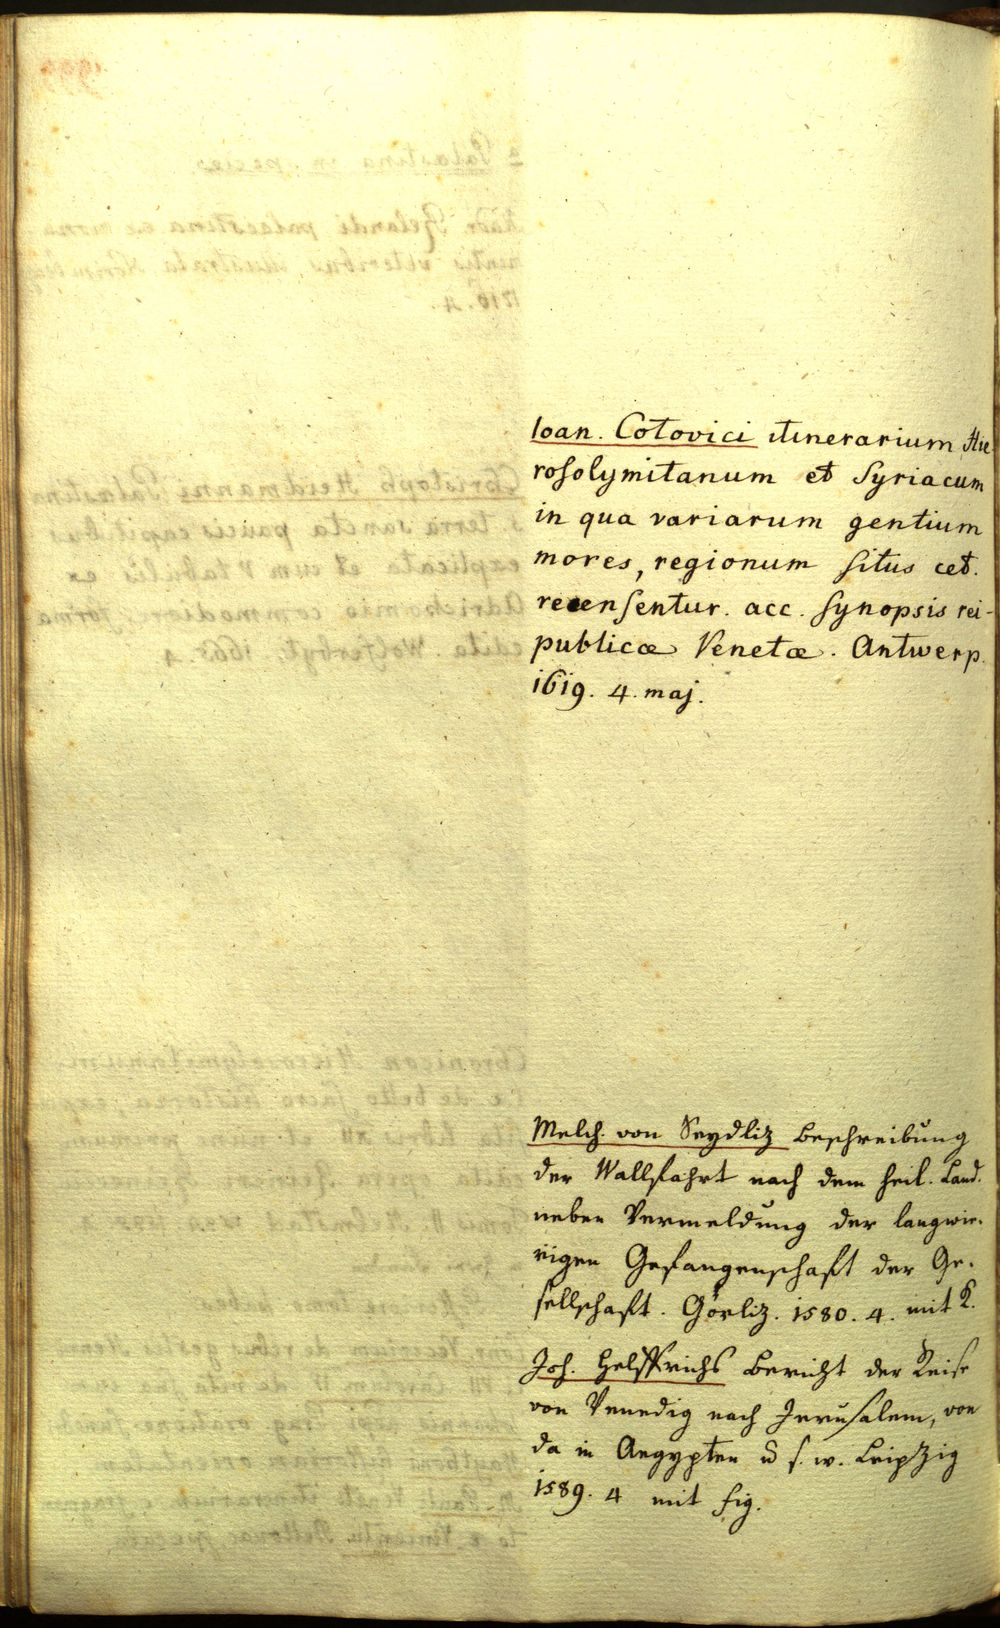 Ioan. Cotovici itinerarium Hie
rosolymitanum et Syriacum
in qua variarum gentium
mores, regionum situs cet.
recensentur. acc. synopsis rei-
publicæ Venetæ. Antwerp.
1619. 4. maj.
Melch. von Seydliz Beschreibung
der Wallfahrt nach dem heil. Land.
neben Vermeldung der langwie-
rigen Gefangenschaft der Ge-
sellschaft. Görliz. 1580. 4. mit K.
Joh. Helffrichs Bericht der Reise
von Venedig nach Jerusalem, von
da in Aegypten u s. w. Leipzig
1589. 4 mit fig.